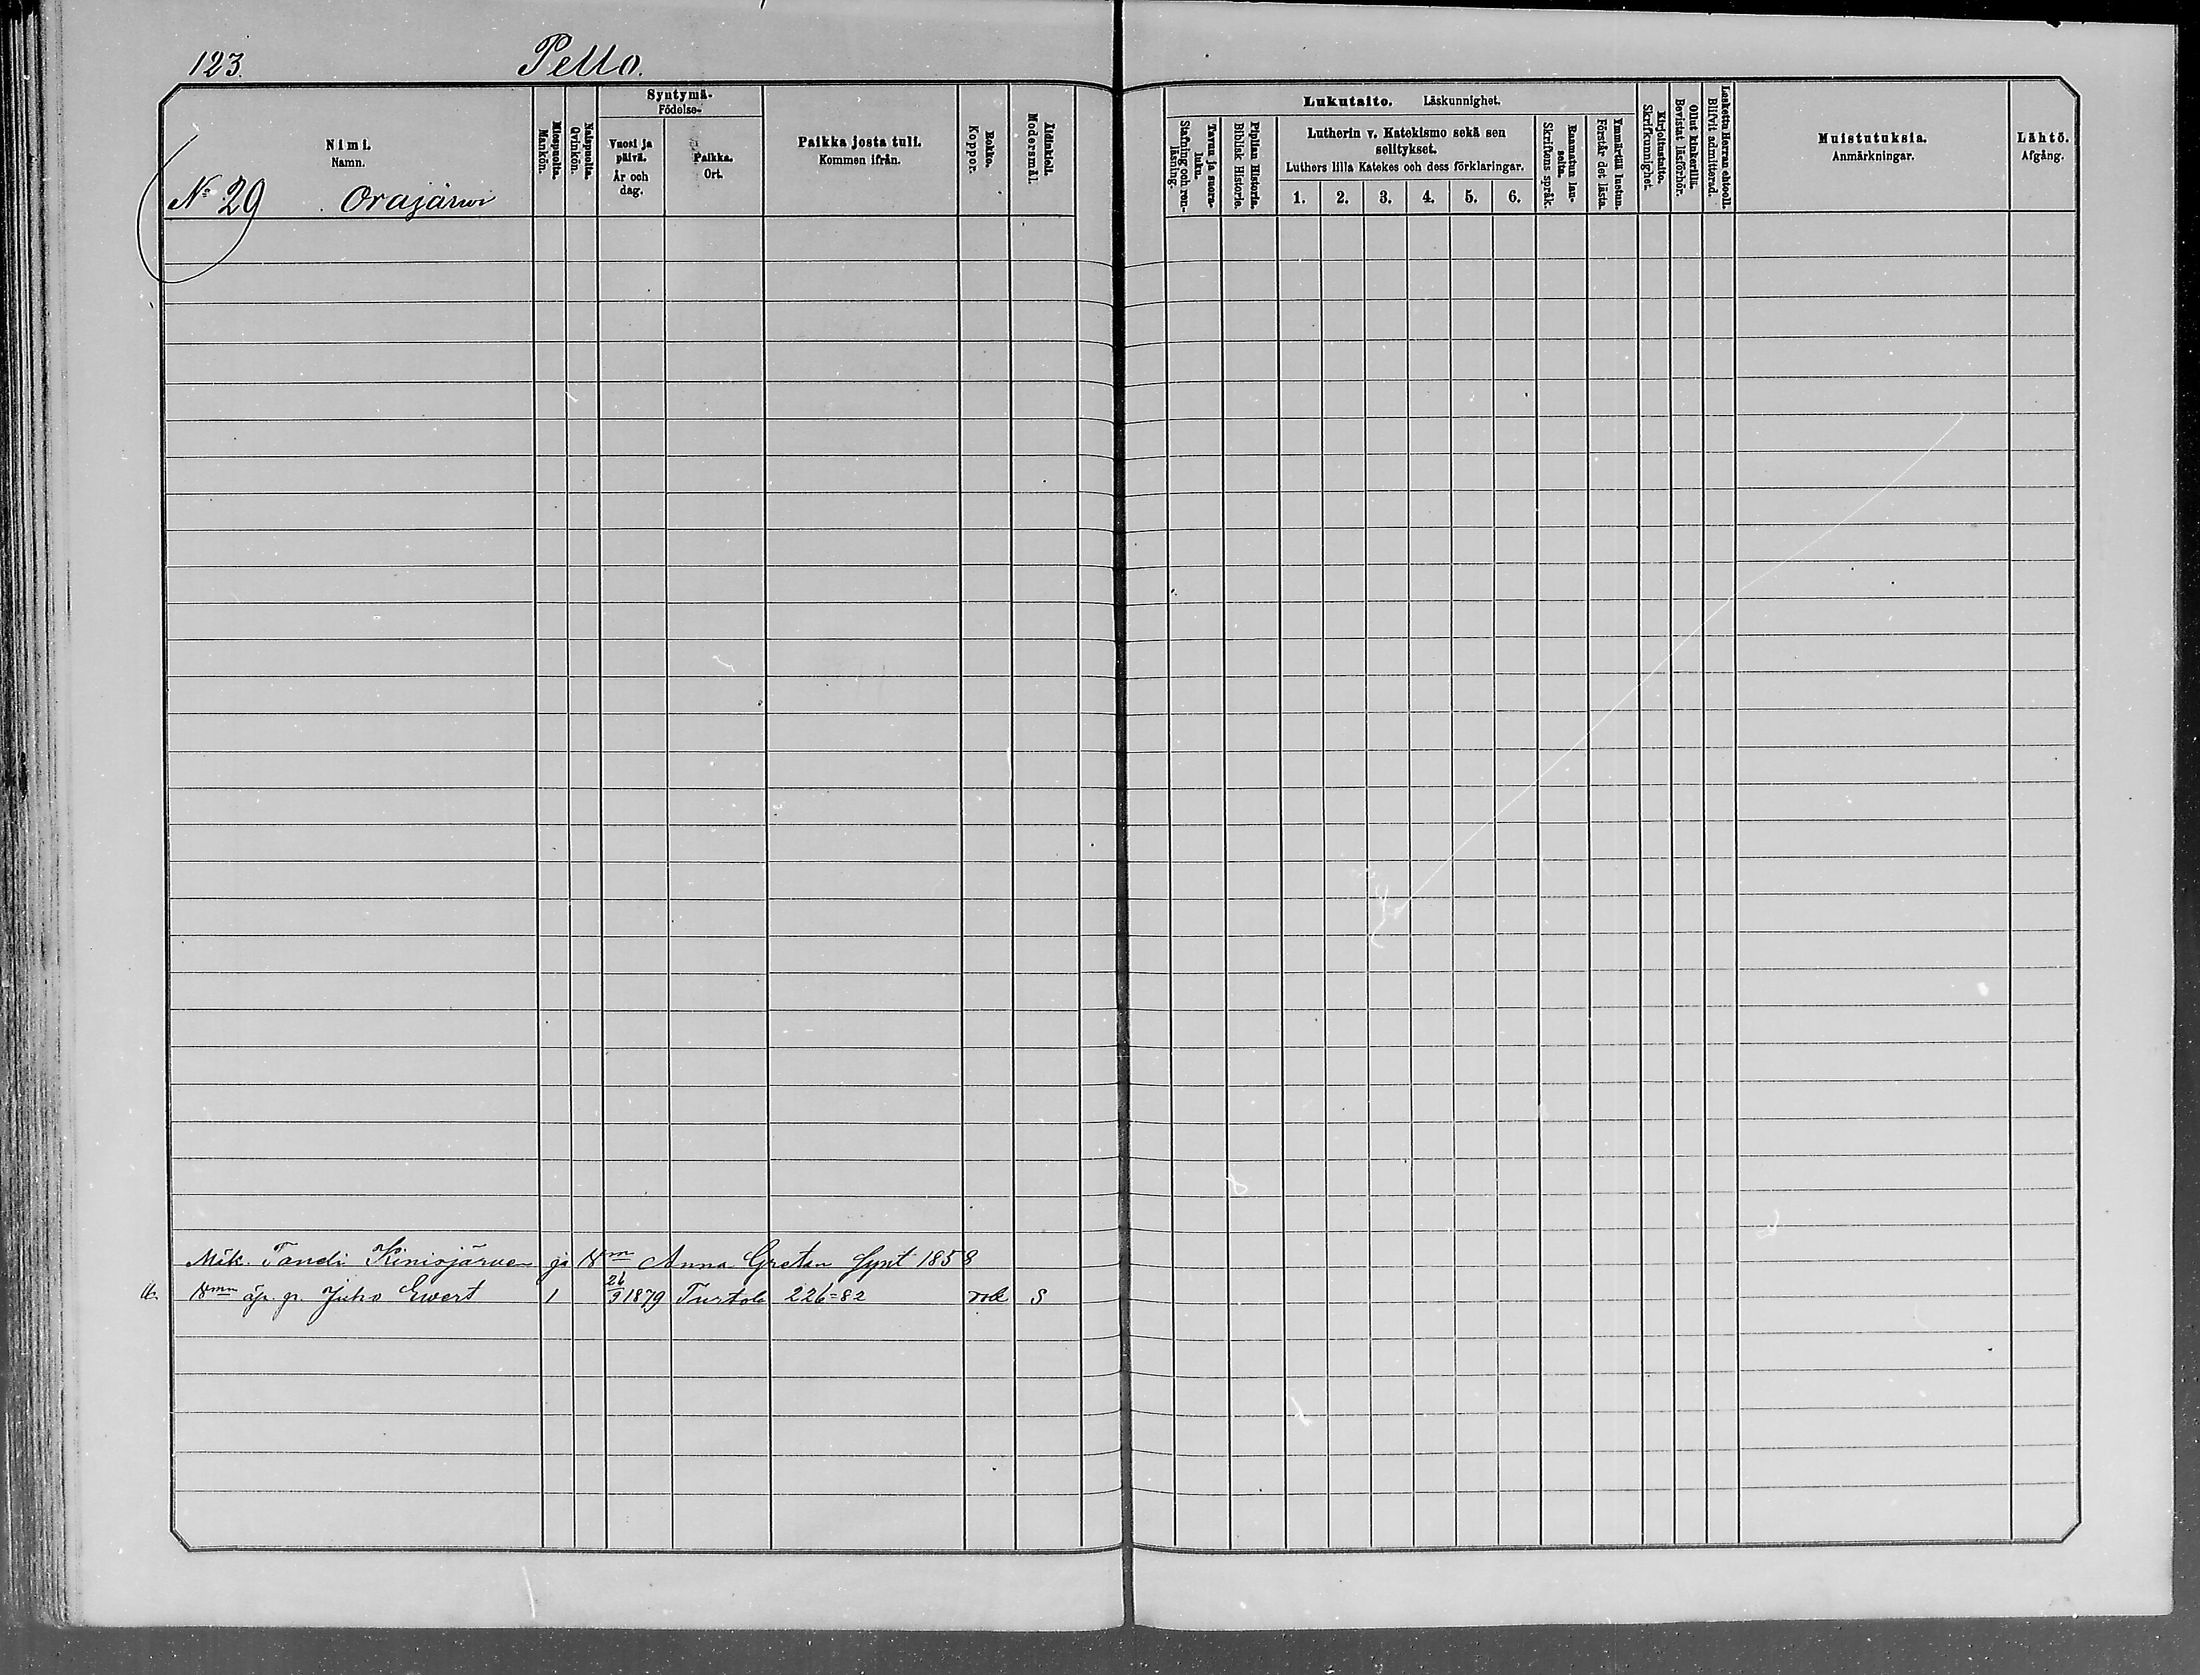 123.
Pello.
Nimi.
Namn.
Miespuolia.
Mankön.
Naispuolia.
Qvinkön.
Syntymä-
Födelse-
Vuosi ja päivä.
År och dag.
Paikka.
Ort.
Paikka josta tuli.
Kommen ifrån.
Rokko.
Koppor.
Äidinkieli.
Modersmål.
Lukutaito. Läskunnighet.
Tavuu ja suora-luku.
Stafning och ren-läsning.
Piplian Historia.
Biblisk Historie.
Lutherin v. Katekismo sekä sen
selitykset.
Luthers lilla Katekes och dess förklaringar.
1. 2. 3. 4. 5. 6.
Raamatun lau-seita.
Skriftens språk.
Ymmärtää luetun.
Förstår det lästa.
Kirjoitustaito.
Skrifkunnighet.
Ollut kinkerillä.
Bevistat läsförhör.
Laskettu Herran ehtooll.
Blifvit admitterad.
Muistutuksia.
Anmärkningar.
Lähtö.
Afgång.
No 29 Orajärwi
Mäk. Kinisjärven ja Anna Gretan synt 1858
äp. p. Juho Ewert 1 26/9 1879 Turtola 226=82 rok S